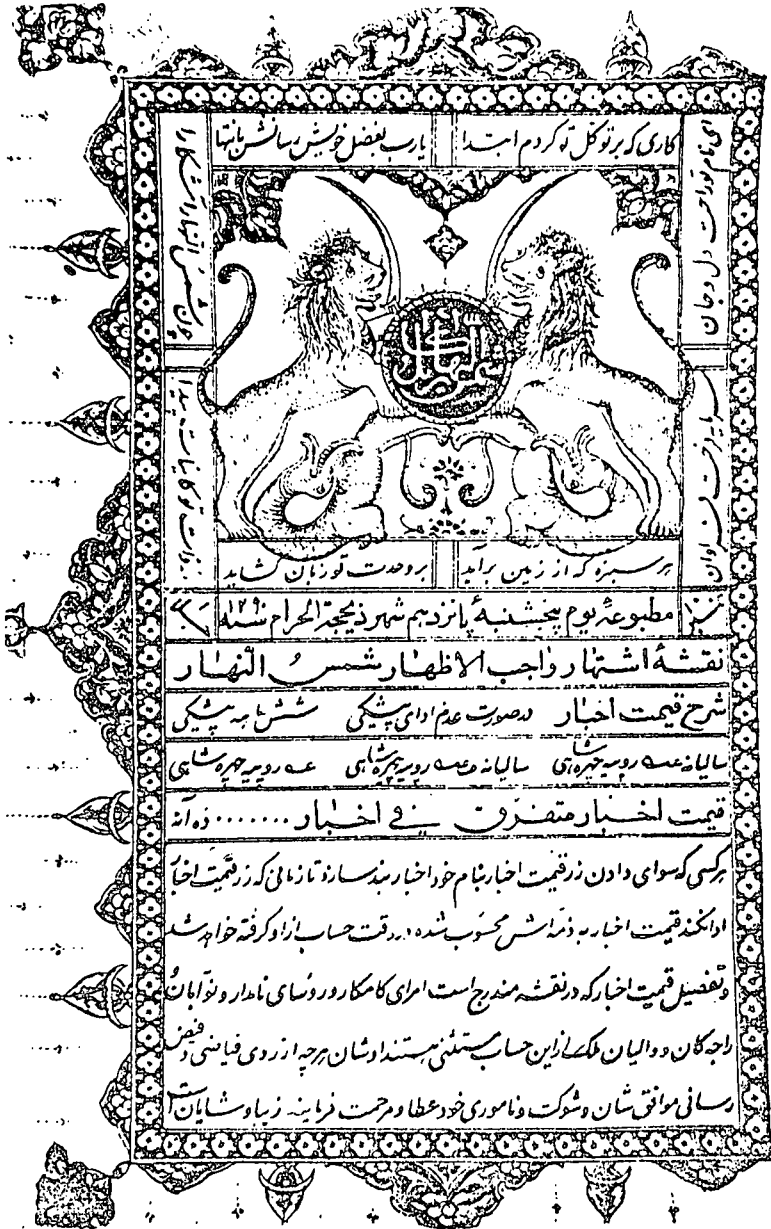 کاری که بر توکل تو کردم ابتدا
یارب بفضل خویش رسانش بانتها
ای نام تو راحت دل و جان
چون شمس النهار آشکارا
شمس النهار کابل
هر سبزه که از زمین برآید
بر وحدت تو زبان کشاید
مطبوعهٔ یوم پنجشنبهٔ پانزدهم شهر ذیحجة الحرام سنه ۱۲۹۰
نقشهٔ اشتهار واجب الاظهار شمس النهار
شرح قیمت اخبار در صورت عدم ادای پیشکی شش ماهه پیشکی
سالیانه روپیه چهره شاهی سالیانه روپیه چهره شاهی روپیه چهره شاهی
قیمت اخبار متفرق فی اخبار ........ ده آنه
هر کسی که سوای دادن زر قیمت اخبار بنام خود اخبار بند سازد تا زمانی که زر قیمت اخبار
ادا نکند قیمت اخبار به ذمه اش محسوب شده در وقت حساب از او گرفته خواهد شد
و تفصیل قیمت اخبار که در نقشه مندرج است امرای کامکار و روسای نامدار و نوآبان
راجه گان و والیان ملک از این حساب مستثنی هستند اوشان هر چه از روی فیاضی و فیض
رسانی موافق شان و شوکت و ناموری خود عطا و مرحمت فرمایند زیبا و شایان است